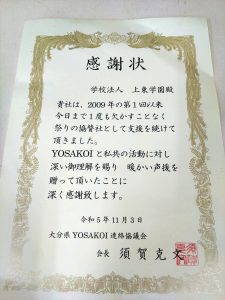 感謝状
学校法人 上東学園殿
貴社は、2009年の第1回以来
今日まで1度も欠かすことなく
祭りの協賛社として支援を続けて
頂きました。
YOSAKOIと私共の活動に対し
深い御理解を賜り 暖かい声援を
贈って頂いたことに
深く感謝致します。
令和5年11月3日
大分県YOSAKOI連絡協議会
会長 須賀克文